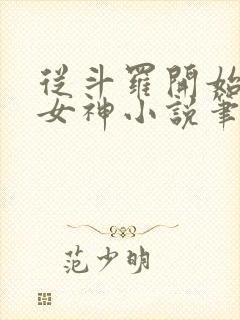 從斗羅開始
女神小說筆
范少明